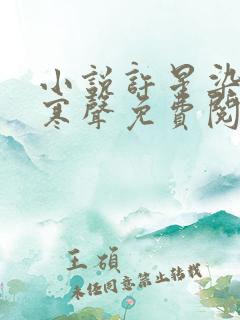 小說許星染
寒聲免費閱
王碩
未经同意禁止转载